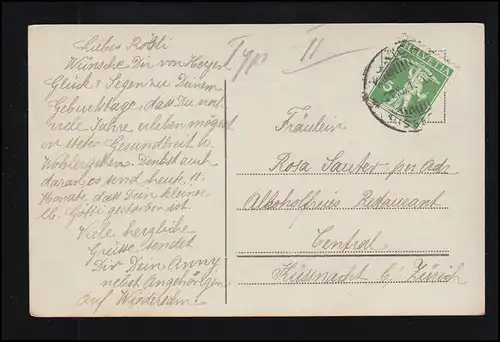 Liebes Rösli
Wünsche Dir von Herzen
Glück & Segen zu Deinem
Geburtstage, dass Du noch
viele Jahre erleben mögest
in steter Gesundheit u.
Wohlergehen. Denkst auch
daran, es sind heute 11
Monate, dass Dein kleiner
lb. Götti gestorben ist.
Viele herzliche
Grüsse sendet
Dir Dein Anny
nebst Angehörigen
auf Wiedersehn!
Typ II
HELVETIA
5
Fräulein
Rosa Sauter per Adr.
Alkoholfreies Restaurant
Central
Küsnacht b/ Zürich